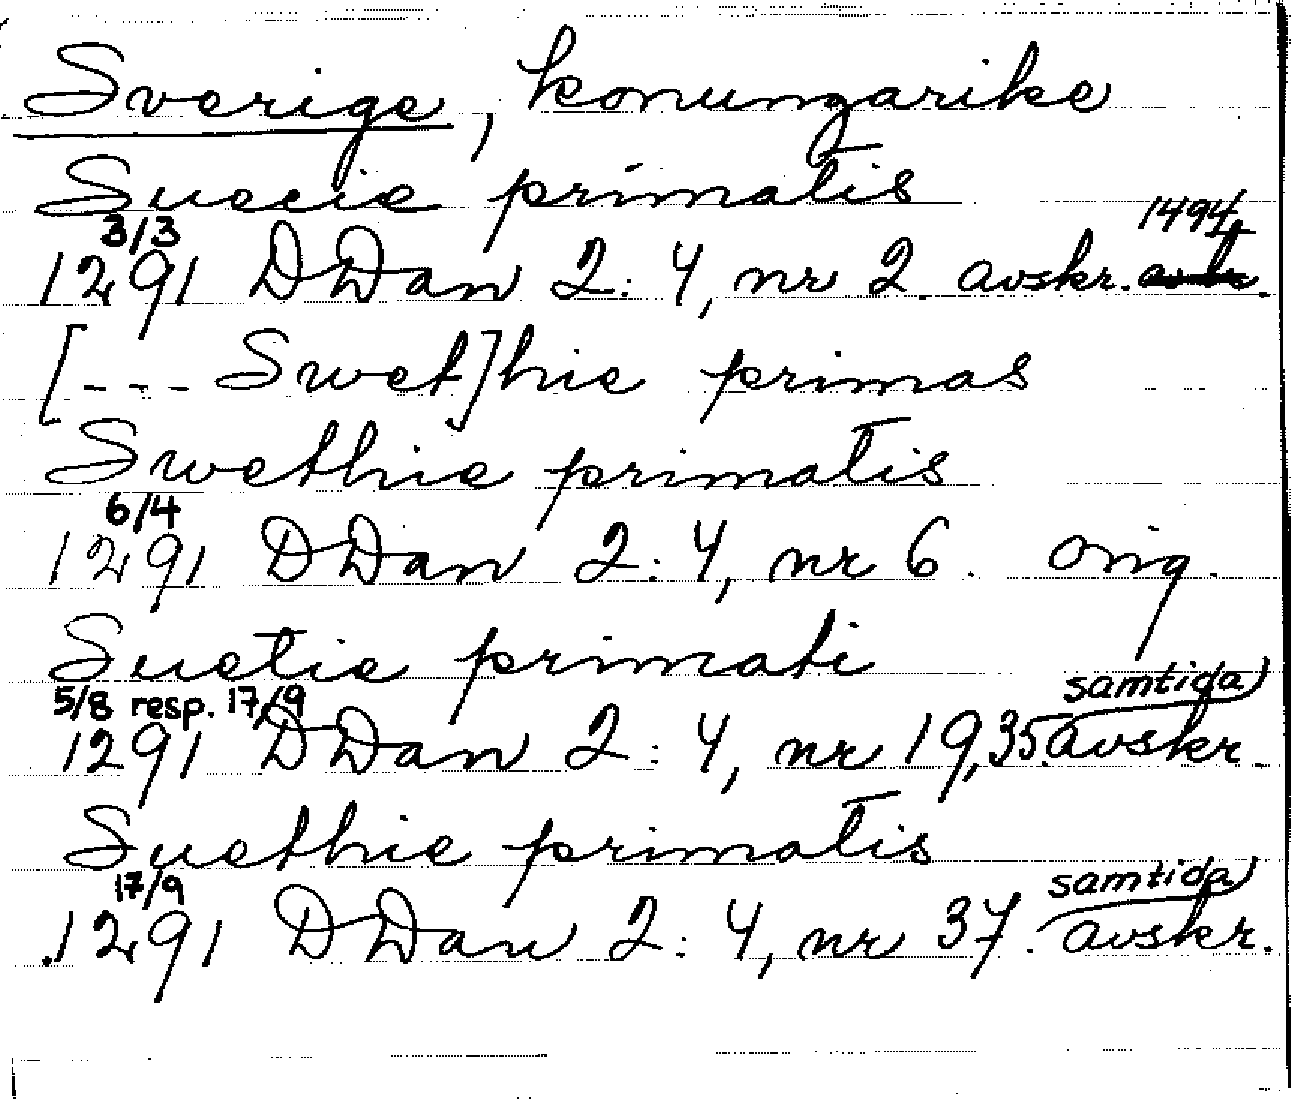 Sverige, konungarike
Suecie primatis
3/3 1494
1291 DDan 2:4, nr 2. avskr.
[--- Swet]hie primas
Swethie primatis
6/4
1291 DDan 2:4, nr 6. orig.
Suetie primati
5/8 resp. 17/9 samtida
1291 DDan 2:4, nr 19,35. avskr.
Suethie primatis
17/9 samtida
1291 DDan 2:4, nr 37. avskr.